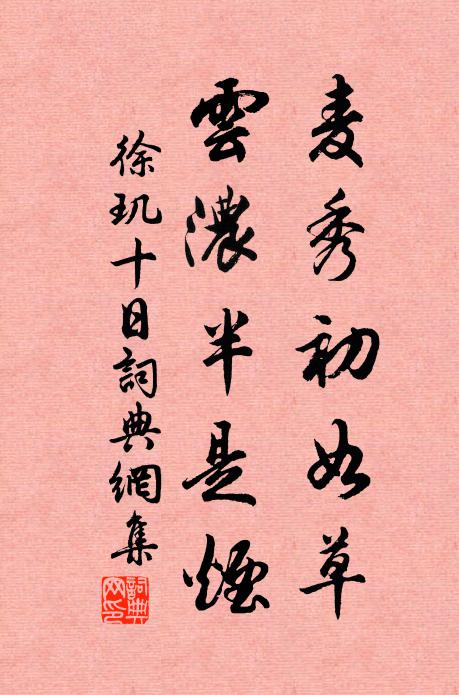 麦秀初如草
雲濃半是煙
徐玑十日詞典網集
詞典網印